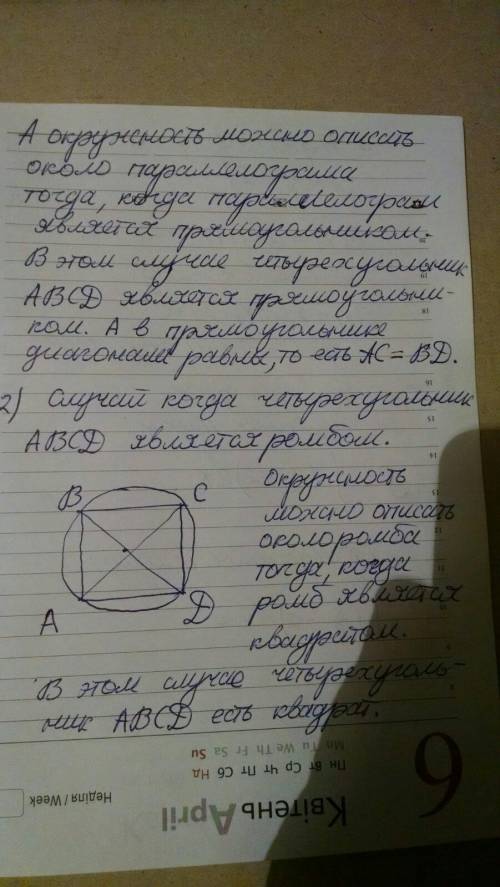 А окружность можно описать
около параллелограма
тогда, когда параллелограм
является прямоугольником.
В этом случае четырехугольник
ABCD является прямоугольни-
ком. А в прямоугольнике
диагонали равны, то есть AC = BD.
2) Случай когда четырехугольник
ABCD является ромбом.
B C
A D
окружность
можно описать
около ромба
тогда, когда
ромб является
квадратом.
В этом случае четырехуголь-
ник ABCD есть квадрат.
6
Mo Tu We Th Fr Sa Su
Пн Вт Ср Чт Пт Сб Нд
Неділя / Week
Квітень April